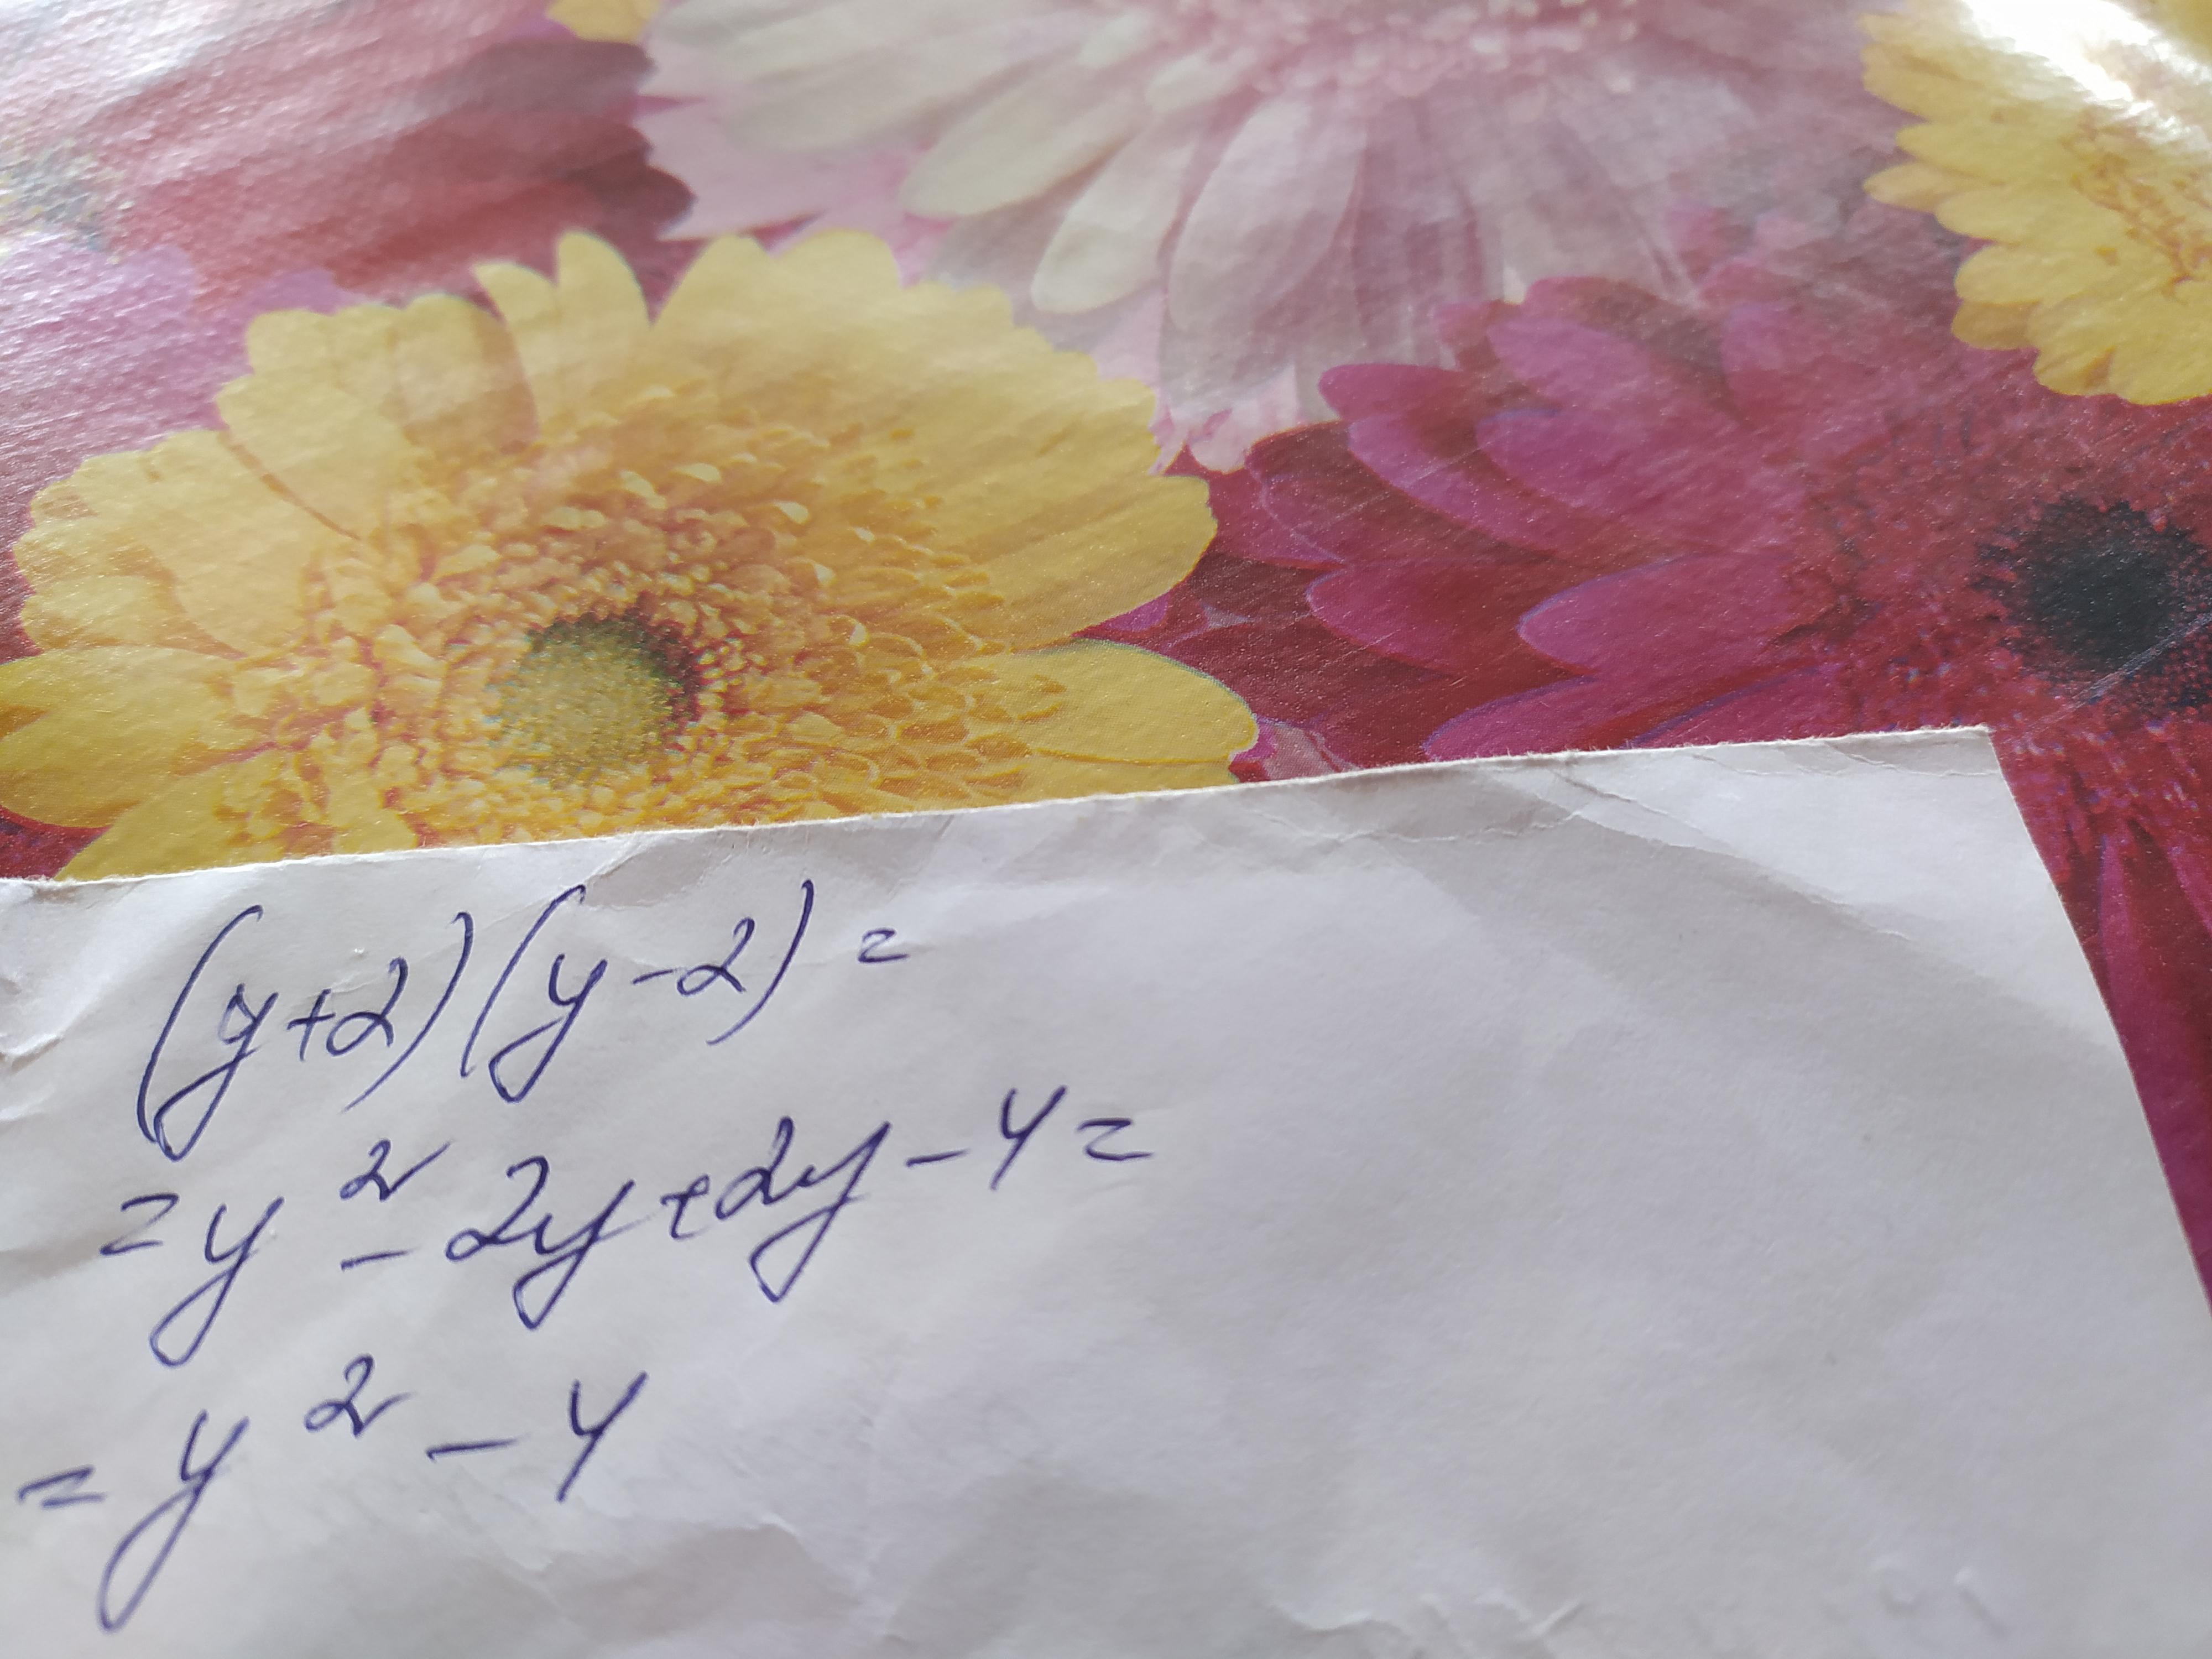 (y+2)(y-2)=
=y²-2y+2y-4=
=y²-4